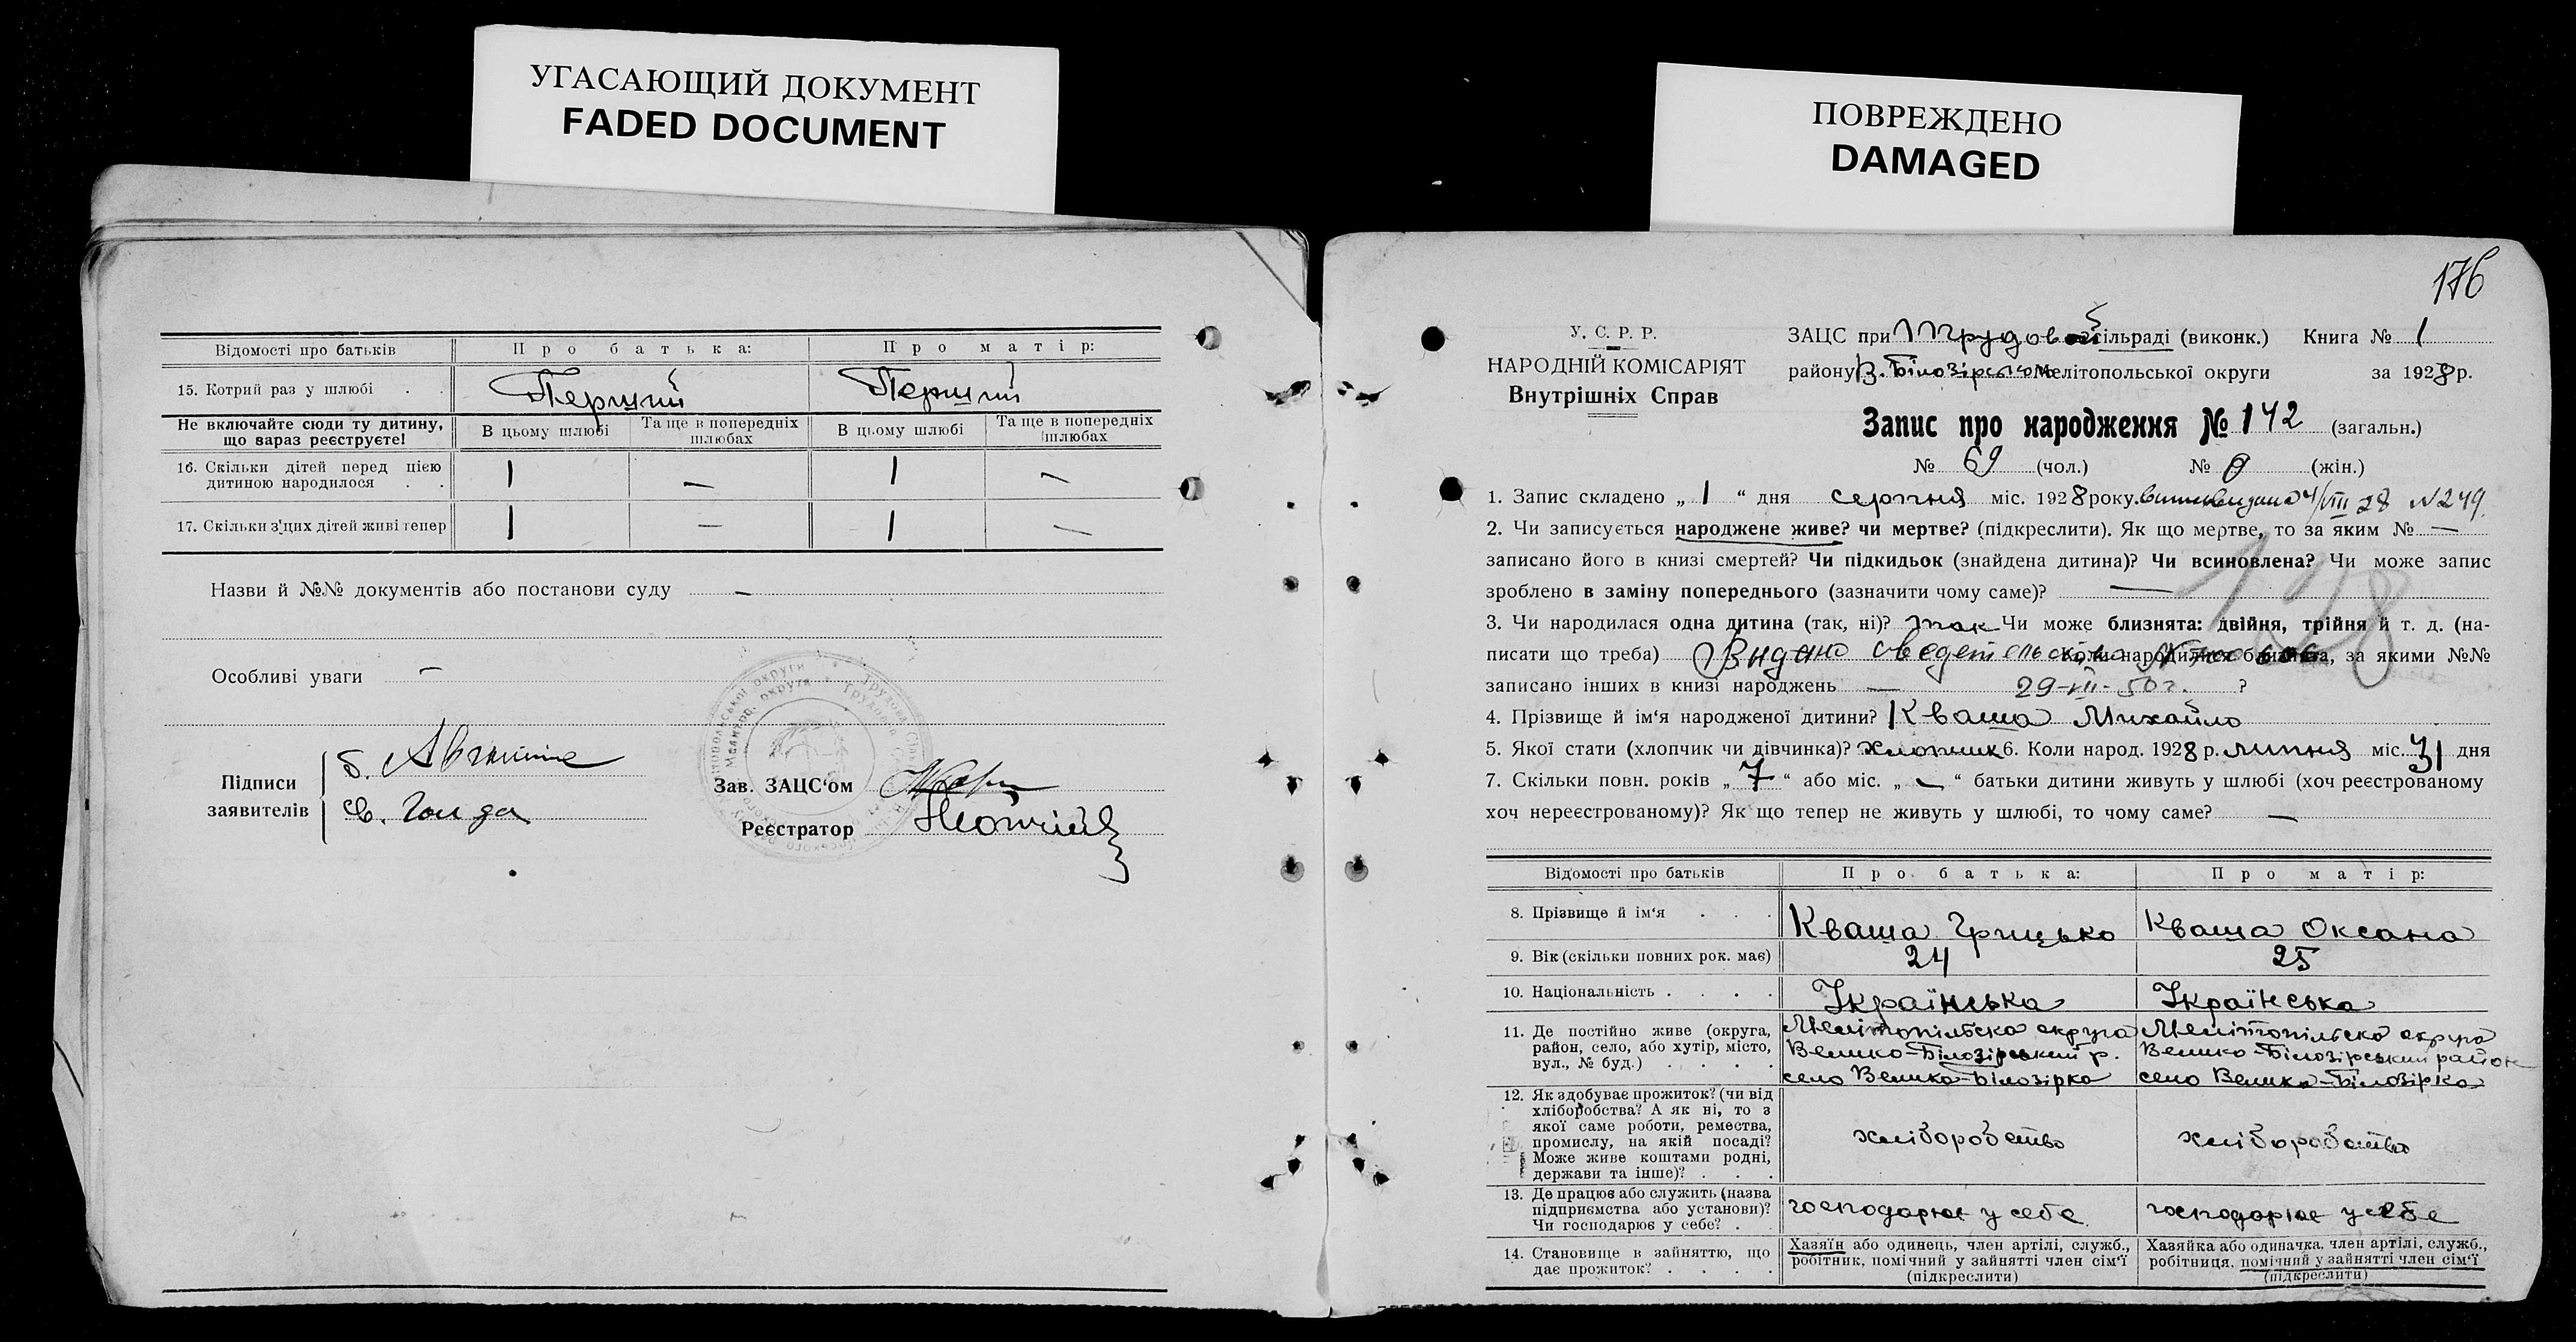 УГАСАЮЩИЙ ДОКУМЕНТ
FADED DOCUMENT
ПОВРЕЖДЕНО
DAMAGED
Відомості про батьків Про батька: Про матір:
15. Котрий раз у шлюбі . . Перший Перший
Не включайте сюди ту дитину, що зараз реєструєте! В цьому шлюбі Та ще в попередніх шлюбах В цьому шлюбі Та ще в попередніх шлюбах
16. Скільки дітей перед цією
дитиною народилося . . 1 — 1 —
17. Скільки з'цих дітей живі тепер 1 — 1 —
Назви й №№ документів або постанови суду —
Особливі уваги —
Підписи
заявителів
Зав. ЗАЦС‘ом
Реєстратор
176
У. С. Р. Р.
НАРОДНІЙ КОМІСАРІЯТ
Внутрішніх Справ
ЗАЦС при Трудовой сільраді (виконк.) Книга № 1
району В. Білозірськом Мелітопольської округи за 1928 р.
Запис про народження № 142 (загальн.)
№ 69 (чол.) № 0 (жін.)
1. Запис складено „ 1 “ дня серпня міс. 1928 року. 4/VIII 28 N 249
2. Чи записується народжене живе? чи мертве? (підкреслити). Як що мертве, то за яким № —
записано його в книзі смертей? Чи підкидьок (знайдена дитина)? Чи всиновлена? Чи може запис
зроблено в заміну попереднього (зазначити чому саме)? —
3. Чи народилася одна дитина (так, ні)? так Чи може близнята: двійня, трійня й т. д. (на-
писати що треба) Видано сведетельство Коли народилися близнята, за якими №№
записано інших в книзі народжень — 29-VIII-50 г. ?
4. Прізвище й ім‘я народженої дитини? Кваша Михайло
5. Якої стати (хлопчик чи дівчинка)? хлопчик 6. Коли народ. 1928 р. липня міс. 31 дня
7. Скільки повн. років „ 7 “ або міс. „ — “ батьки дитини живуть у шлюбі (хоч реєстрованому
хоч нереєстрованому)? Як що тепер не живуть у шлюбі, то чому саме? —
Відомості про батьків Про батька: Про матір:
8. Прізвище й ім‘я . . . Кваша Грицько Кваша Оксана
9. Вік (скільки повних рок. має) 24 25
10. Національність . . . . Українська Українська
11. Де постійно живе (округа,
район, село, або хутір, місто,
вул., № буд.) . . . .
Мелітопільска округа
Велико-Білозірський р.
село Велико-Білозірка
Мелітопільска округа
Велико-Білозірський район
село Велика-Білозірка
12. Як здобуває прожиток? (чи від
хліборобства? А як ні, то з
якої саме роботи, ремества,
промислу, на якій посаді?
Може живе коштами родні,
держави та інше)? . . .
хліборобство хліборобство
13. Де працює або служить (назва
підприємства або установи)?
Чи господарює у себе? .
господарює у себе господарює у себе
14. Становище в зайняттю, що
дає прожиток? . . . .
Хазяїн або одинець, член артілі, служб.,
робітник, помічний у зайнятті член сім‘ї
(підкреслити)
Хазяйка або одиначка, член артілі, служб.,
робітниця, помічний у зайнятті член сім‘ї
(підкреслити)